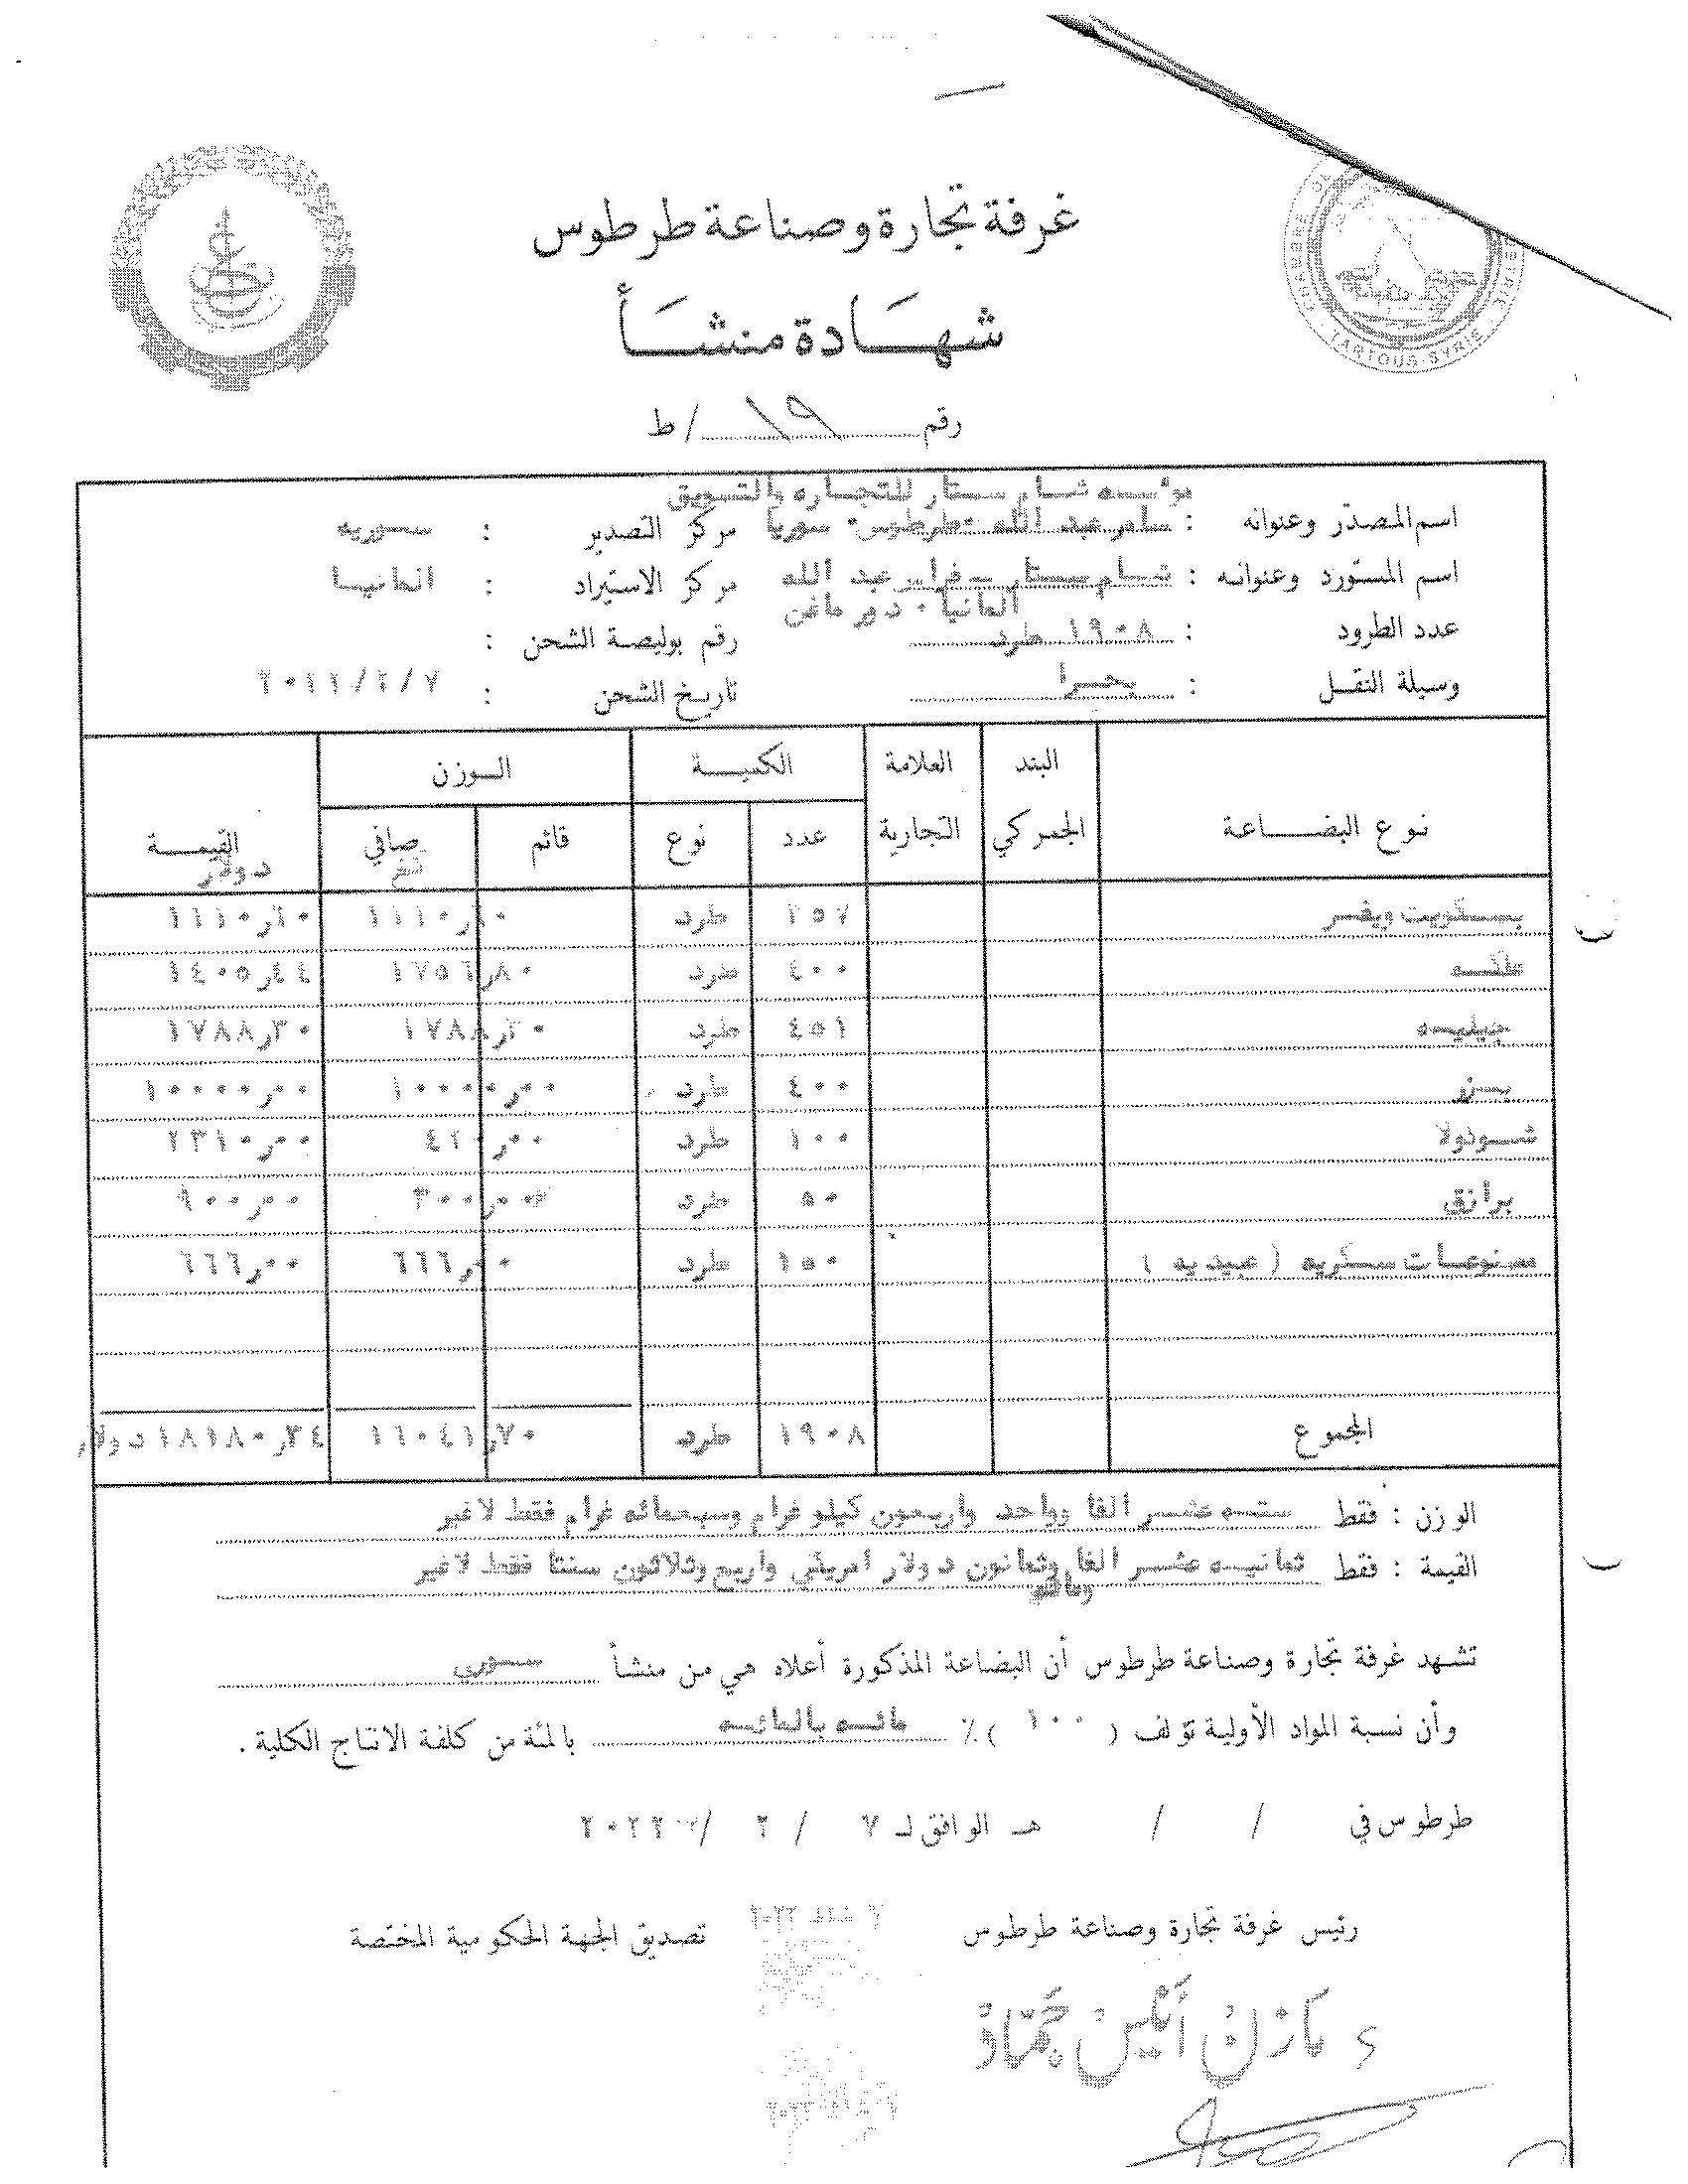 غرفة تجارة وصناعة طرطوس
شهادة منشأ
رقم ١٩ / ط
TARTOUS-SYRIE
مؤسسه شام ستار للتجاره والتسويق
اسم المصدّر وعنوانه : سامر عبد الله -طرطوس- سوريا مركز التصدير : سوريه
اسم المستورد وعنوانه : شام ستار - فراس عبد الله مركز الاستيراد : المانيا
المانيا - دورماغن
عدد الطرود : ١٩٠٨ طرد رقم بوليصة الشحن :
وسيلة النقل : بحرا تاريخ الشحن : ٢٠٢٢/٢/٧
نوع البضاعة البند الجمركي العلامة التجارية الكمية الوزن القيمة دولار
عدد نوع قائم صافي كغ
بسكويت ويفر ٣٥٧ طرد ١١١٠ر٦٠ ١١١٠ر٦٠
علكه ٤٠٠ طرد ١٧٥٦ر٨٠ ١٤٠٥ر٤٤
جيليه ٤٥١ طرد ١٧٨٨ر٣٠ ١٧٨٨ر٣٠
بزر ٤٠٠ طرد ١٠٠٠٠ر٠٠ ١٠٠٠٠ر٠٠
شوكولا ١٠٠ طرد ٤٢٠ر٠٠ ٢٣١٠ر٠٠
برازق ٥٠ طرد ٣٠٠ر٠٠ ٩٠٠ر٠٠
منوعات سكريه ( عبيديه ) ١٥٠ طرد ٦٦٦ر٠٠ ٦٦٦ر٠٠
المجموع ١٩٠٨ طرد ١٦٠٤١ر٧٠ ١٨١٨٠ر٣٤ دولار
الوزن : فقط سته عشر الفا وواحد واربعون كيلو غرام وسبعمائه غرام فقط لاغير
القيمة : فقط ثمانيه عشر الفا وثمانون دولار امريكي واربع وثلاثون سنتا فقط لاغير
ومائه
تشهد غرفة تجارة وصناعة طرطوس أن البضاعة المذكورة أعلاه هي من منشأ سوري
وأن نسبة المواد الأولية تؤلف ( ١٠٠ ) ٪ مائه بالمائه بالمئة من كلفة الانتاج الكلية .
طرطوس في / / هـ الموافق لـ ٧ / ٢ / ٢٠٢٢
رئيس غرفة تجارة وصناعة طرطوس ٧ شباط ٢٠٢٢ تصديق الجهة الحكومية المختصة
مازن أنيس حماد